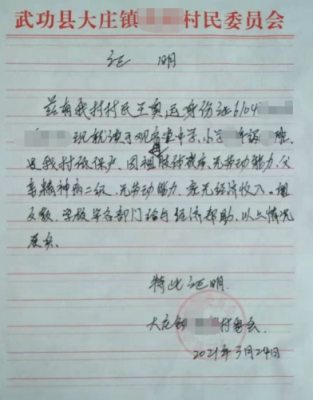 武功县大庄镇 村民委员会
证 明
兹有我村村民王 身份证6104
现就读于 中学、小学 年级 班
是我村低保户,因祖 残 无劳动能力,父
亲精神病二级,无劳动能力,家无经济收入。
学校等各部门给与经济帮助,以上情况
属实。
特此证明
大庄镇 村委会
2021年3月24日